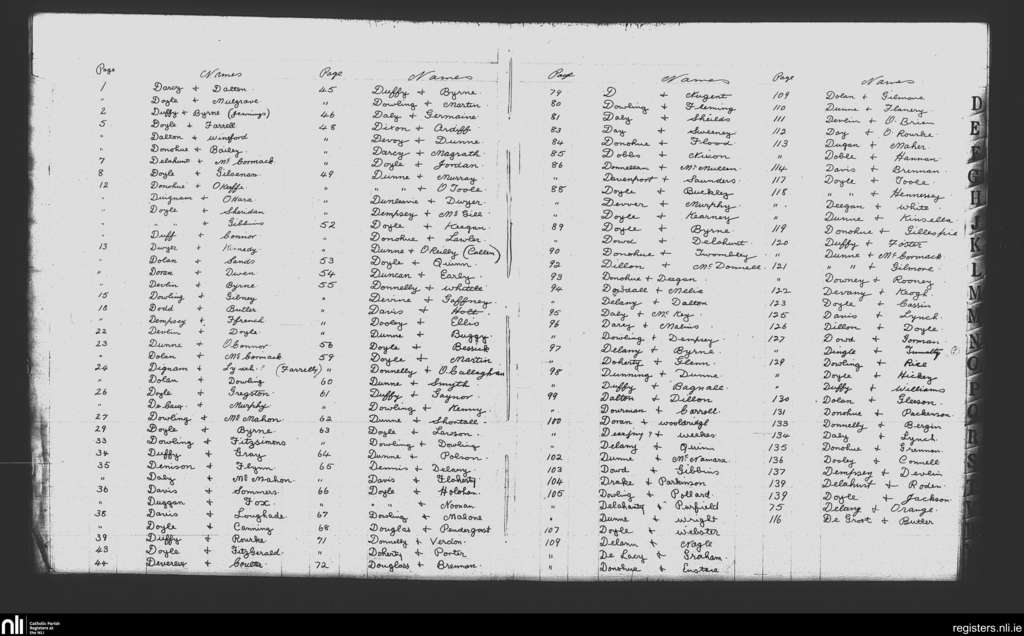 Page Names
1 Darcy + Dalton
" Doyle + Mulgrave
2 Duffy + Byrne (Jennings)
5 Boyle + Farrell
" Dalton + Winford
" Donohue + Bailey
7 Delahunt + Mc Cormack
8 Doyle + Gilsenan
12 Donohue + O'Keeffe
" Duignam + O'Hara
" Doyle + Sheridan
" " " + Gibbins
" Duff + Connor
13 Dwyer + Kennedy
" Dolan + Sands
" Doran + Owen
" Devlin + Byrne
15 Dowling + Gibney
18 Dodd + Butler
" Dempsey + Ffrench
22 Devlin + Doyle
23 Dunne + O'Connor
" Dolan + Mc Cormack
24 Dignam + Lynch? (Farrelly)
" Dolan + Dowling
26 Doyle + Gregston
" + Murphy
27 Dowling + Mc Mahon
29 Boyle + Byrne
33 Dowling + Fitzsimons
34 Duffy + Gray
35 Denison + Flynn
" Daly + Mc Mahon
36 Davis + Sommers
" Duggan + Fox
38 Davis + Loughade
" Doyle + Canning
39 Duffy + Rourke
43 Doyle + FitzGerald
44 Devereux + Coulter
Page Names
45 Duffy + Byrne
" Dowling + Martin
46 Daly + Germaine
48 Dixon + Ardiff
" Devoy + Dunne
" Darcy + Magrath
" Doyle + Jordan
49 Dunne + Murray
" " " + O'Toole
" Dunleavie + Dwyer
" Dempsey + Mc Gill
52 Doyle + Keegan
" Donohue + Lawler
" Dunne + O'Reilly (Cullen)
53 Doyle + Quinn
54 Duncan + Early
55 Donnelly + Whittle
" Devine + Gaffney
" Davis + Holt
" Dooley + Ellis
" Dunne + Buggy
56 Doyle + Bessick
59 Doyle + Martin
" Donnelly + O'Callaghan
60 Dunne + Smyth
61 Duffy + Gaynor
" Dowling + Kenny
62 Dunne + Shortall
63 Doyle + Lawson
" Dowling + Dowling
64 Dunne + Polson
65 Dennis + Delany
" Davis + Flaherty
66 Doyle + Holohan
" " " + Noonan
67 Dowling + Malone
68 Douglas + Pendergast
71 Donnelly + Verdon
" Doherty + Porter
72 Douglass + Brennan
Page Names
79 D + Nugent
80 Dowling + Fleming
81 Daly + Shields
83 Day + Sweeney
84 Donohue + Flood
85 Dobbs + Nixon
86 Donnellan + Mc Mullen
" Davenport + Saunders
88 Doyle + Buckley
" Denver + Murphy
" Doyle + Kearney
89 Doyle + Byrne
" Dowd + Delahunt
90 Donohue + Twombley
92 Dillon + Mc Donnell
93 Donohue + Deegan
94 Dowdall + Melia
" Delany + Dalton
95 Daly + Mc Key
96 Darcy + Melius
" Dowling + Dempsey
97 Delany + Byrne
" Doherty + Glenn
98 Dunning + Dunne
" Duffy + Bagnall
99 Dalton + Dillon
" Doorman + Carroll
100 Doran + Wooldridge
" + Weekes
" Delany + Quinn
102 Dunne + Mc Namara
103 Dowd + Gibbins
104 Drake + Parkinson
105 Dowling + Pollard
" Delaherty + Parfield
" Dunne + Wright
107 Doyle + Webster
109 Delann + Nagle
" De Lacy + Graham
" Donohue + Eustace
Page Names
109 Dolan + Gilmore
110 Dunne + Flanery
111 Devlin + O'Brien
112 Day + O'Rourke
113 Dugan + Maher
" Doble + Hannan
114 Davis + Brennan
117 Doyle + Toole
118 " " + Hennessy
" Deegan + White
" Dunne + Kinsella
119 Donohue + Gillespie
120 Duffy + Foster
" Dunne + Mc Cormack
121 " " + Gilmore
" Downey + Rooney
122 Devany + Keogh
123 Doyle + Cassin
125 Davis + Lynch
126 Dillon + Doyle
127 Dowd + Gorman
" Dingle + Tumalty (?)
129 Dowling + Rice
" Doyle + Hickey
" Duffy + Williams
130 Dolan + Gleeson
131 Donohue + Packenson
133 Donnelly + Bergin
134 Daly + Lynch
135 Donohue + Grennan
136 Dooley + Connell
137 Dempsey + Devlin
139 Delahunt + Roden
139 Doyle + Jackson
75 Delany + Orange
116 De Groot + Butler
D
E
F
G
H
J
K
L
M
M
N
O
P
Q
R
S
nli Catholic Parish Registers at the NLI
registers.nli.ie